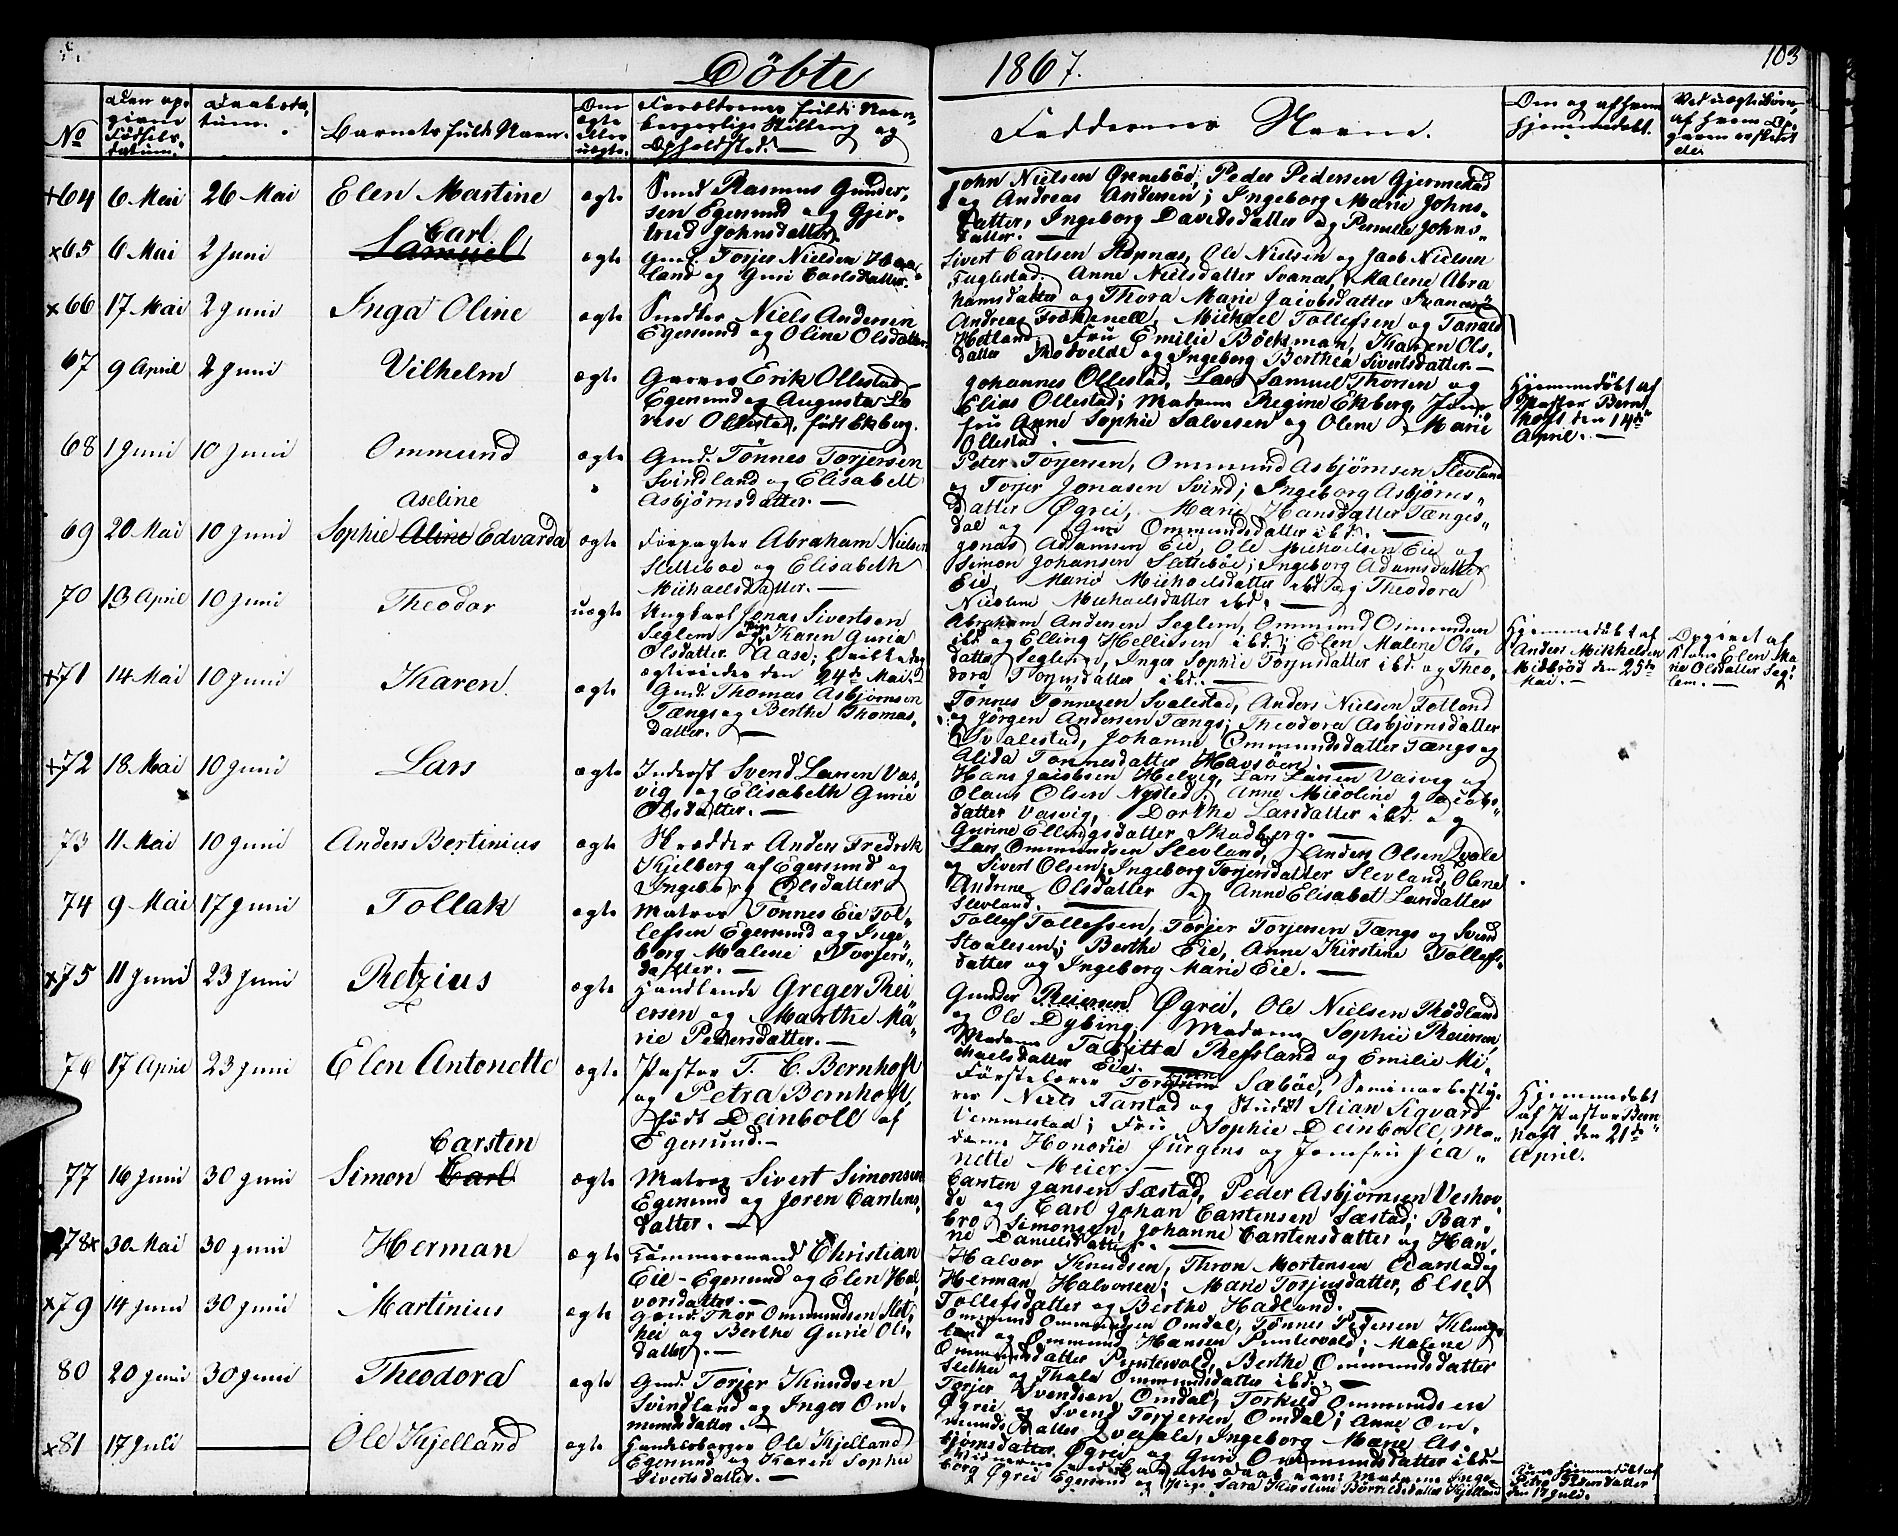 Döbte 1867.
103
No
Den op-
givne
Födsels-
datum.
Daabsda-
tum.
Barnets fulde Navn.
Om
ægte
eller
uægte.
Forældrenes fulde Navn,
borgerlige Stilling og
Opholdsted.
Faddernes Navne.
Om og af hvem
hjemmedöbt.
Ved uægte Börn,
af hvem Op-
gaven er skeet
64 6 Mai 26 Mai Elen Martine ægte
Smed Rasmus Gunder-
sen Egersund og Gjer-
trud Johnsdatter.
John Nielsen Greneböe, Peder Pedersen Gjermestad
og Andreas Andersen; Ingeborg Marie Johns-
datter, Ingeborg Davidsdatter og Pernele Johns-
datter.
x65 6 Mai 2 Juni Carl Samuel ægte
Gmd. Torjer Nielsen
land og Guri Carlsdatter.
Sivert Carlsen Röpnes, Ole Nielsen og Jacob Nielsen
Fuglestad. Anne Nielsdatter Svanes, Malene Abra
hamsdatter og Thora Marie Jacobsdatter Svanes
x66 17 Mai 2 Juni Inga Oline ægte
Smedter Niels Andersen
Egersund og Oline Olsdatter.
Andreas Michael Tollefsen og
Hetland, Fru Emilie Bockman, Karen Ols-
datter Rodvelde og Ingeborg Berthea Sivertsdatter.
67 9 April 2 Juni Vilhelm ægte
Garver Erik Ollestad
Egersund og Augusta Lo
vise Ollestad, födt Ekberg.
Johannes Ollestad, Lars Samuel Thorsen og
Elias Ollestad; Madam Regine Ekberg, Jom-
fru Anne Sophie Salvesen og Olene Marie
Ollestad.
Hjemmedöbt af
Pastor Bern
hoft den 14de
April.
68 1 Juni 10 Juni Ommund ægte
Gmd. Tönnes Torjersen
Svindland og Elisabeth
Asbjörnsdatter.
Peter Torjersen, Ommund Asbjörnsen Slevland
og Torjer Jonasen Svind; Ingeborg Asbjörns-
datter Ögrei, Marie Hansdatter Tænges-
dal og Guri Ommundsdatter ibd.
69 20 Mai 10 Juni Sophie Aline Aseline Edvarda ægte
Forpagter Abraham Nielsen
Sletteboe og Elisabeth
Michaelsdatter.
Jonas Adamsen Eie, Ole Michaelsen Eie og
Simon Johansen Sletteböe; Ingeborg Adamsdatter
Eie, Marie Michaelsdatter ibd og Theodora
Nicoline Michaelsdatter ibd.
70 13 April 10 Juni Theodor uægte
Ungkarl Jonas Sivertsen
Seglem og Karen Guria
Olsdatter Aase; hvilke
ægteviedes den 24de Mai.
Abraham Andersen Seglem, Ommund Osmundsen
ibd og Elling Hellissen ibd.; Elen Malene Ols-
datter Seglem, Inger Sophie Torjusdatter ibd. og Theo-
dora Torjusdatter ibd.
Hjemmedöbt af
Anders Mikkelsen
Midbröd den 25de
Mai.
Opgivet af
Kone Elen Ma
rie Olsdatter Seg-
lem.
x71 14 Mai 10 Juni Karen ægte
Gmd. Thomas Asbjörnsen
Tængs og Berthe Thomas-
datter.
Tönnes Tönnesen Svalestad, Anders Nielsen Totland
og Jörgen Andersen Tængs; Theodora Asbjörnsdatter
Svalestad, Johanne Ommundsdatter Tængs og
Alida Tönnesdatter Havsöen.
x72 18 Mai 10 Juni Lars ægte
Inderst Svend Larsen Vas-
vig og Elisabeth Gurie
Olsdatter.
Hans Jacobsen Helvig, Lars Larsen Vasvig og
Olaus Olsen Nysted; Anne Nicoline Jacobs-
datter Vasvig, Dorthe Larsdatter ibd. og
Gurine Ellingsdatter Skadberg.
73 11 Mai 10 Juni Anders Bertinius ægte
Skredder Anders Fredrik
Kjelberg af Egersund og
Ingeborg Olsdatter
Lars Ommundsen Slevland, Anders Olsen Qvale
og Sivert Olsen; Ingeborg Torjersdatter Slevland, Olene
Andrine Olsdatter og Anne Elisabet Larsdatter
Slevland.
74 9 Mai 17 Juni Tollak ægte
Matros Tönnes Eie Tol-
lefsen Egersund og Inge
borg Malene Torjers-
datter.
Tollef Tollefsen, Torjer Torjersen Tængs og Svend
Staalesen; Berthe Eie, Anne Kirstine Tollefs-
datter og Ingeborg Marie Eie.
x75 11 Juni 23 Juni Retzius ægte
Handlende Greger Rei
ersen og Marthe Ma-
rie Pedersdatter.
Gunder Reiersen Ögrei, Ole Nielsen Rödland
og Ole Dybing; Madame Sophie Reiersen
Madame Tabitta Refsland og Emilie Mi-
chaelsdatter Eie.
76 17 April 23 Juni Elen Antonette ægte
Pastor T. C. Bernhoft
og Petra Bernhoft,
födt Deinboll af
Egersund.
Förstelærer Sæböe, Seminarbesty-
rer Niels Tarstad og Student Stian Sigvard
Vemmestad; Fru Sophie Deinboll, Ma-
dame Honorie Jürgens og Jomfru Jea-
nette Meier.
Hjemmedöbt
af Pastor Bern
hoft den 21de
April.
77 16 Juni 30 Juni Simon Carl Carsten ægte
Matros Sivert Simonsen
Egersund og Joren Carstens-
datter.
Carsten Jansen Sæstad, Peder Asbjörnsen Veshov-
de og Carl Johan Carstensen Sæstad; Bar-
bro Simonsen, Johanne Carstensdatter og Han-
ne Danielsdatter.
78x 30 Mai 30 Juni Herman ægte
Tömmermand Christian
Eie - Egersund og Elen Hal-
vorsdatter.
Halvor Knudsen, Thron Mortensen Aarstad og
Herman Halvorsen; Marie Torjusdatter, Else
Tollefsdatter og Berthe Hadland.
x79 14 Juni 30 Juni Martinius ægte
Gmd. Thor Ommundsen Slet-
hei og Berthe Gurie Ols-
datter.
Ommund Ommundsen Omdal, Tönnes Pedersen Klunge-
land og Ommund Hansen Puntervold; Malene
Ommundsdatter Puntervold, Berthe Ommundsdatter
Slethei og Thala Ommundsdatter ibd.
80 20 Juni 30 Juni Theodora ægte
Gmd. Torjer Knudsen
Svindland og Inger Om-
mundsdatter.
Torjer Svendsen Omdal, Torkild Ommundsen
Ögrei og Svend Torjersen Omdal; Anne Om-
mundsdatter Qvasale, Ingeborg Marie As-
björnsdatter Ögrei og Guri Ommundsdatter ibd.
x81 17 Juli Ole Kjelland ægte
Handelsborger Ole Kjelland
Egersund og Karen Sophie
Sivertsdatter.
Vidnerne ved Madame Inge-
borg Ögrei Egersund og Pige Sara Kirstine Börrildsdatter Kjelland
Hjemmedöbt af
Petra Pedersdatter
den 17 Juli.